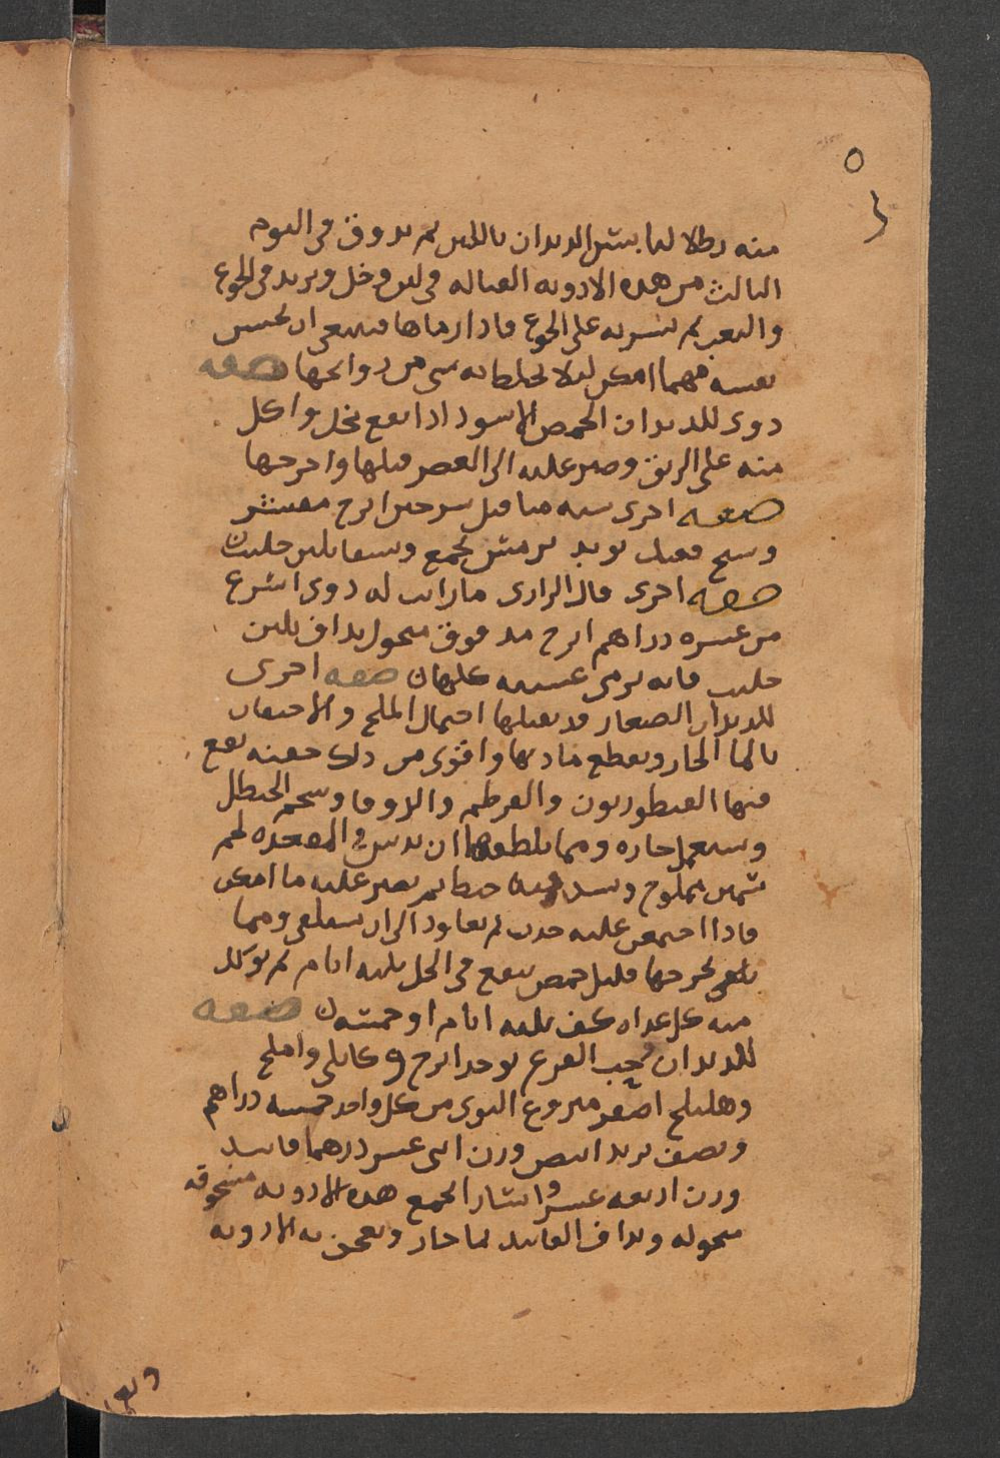 ٥
منه رطلا لما بتش الديدان باللبن ثم يذوق في اليوم
الثالث من هذه الادويه القتاله في لبن وخل ويزيد في الجوع
والتعب ثم يشربه على الجوع فاذا رماها فينبغي ان يحبس
نفسه مهما امكن ليلا يخلطانه شي من روايحها صفه
دوى للديدان الحمص الاسود اذا نقع بخل واكل
منه على الريق وصبر عليه الى العصر قتلها واخرجها
صفه اخرى سنه مثاقيل سرخس ابرنج مقشر
وشيح قنبيل تربد ترمس يجمع ويسقا بلبن حليب
صفه اخرى قال الرازي ما رايت له دوى اشرع
من عشره دراهم ابرنج مدقوق منخول يداف بلبن
حليب فانه يرمى عشيته كلها صفه اخرى
للديدان الصغار قد يقتلها احتمال الملح والاحتقان
بالما الحار ويقطع مادتها واقوى من ذلك حقنه يقع
فيها القنطوريون والقرطم والزوفا وشحم الحنظل
ويستعمل حاره ومما يلطفها ان يدس في المقعده لحم
سمين مملوح ويشد فيه خيط ثم يصبر عليه ما امكن
فاذا اجتمعن عليه جذب ثم يعاود الى ان يستنقي ومما
يخرجها قليل حمص ينقع في الخل ثلثه ايام ثم يوكل
منه كل غداه كف ثلثه ايام او خمسه صفه
للديدان وحب القرع يوخذ ابرنج كابلي واملج
وهليلج اصفر منزوع النوى من كل واحد خمسه دراهم
ونصف تربد ابيض وزن اثنى عشر درهما فانيد
وزن اربعه عشر استارا يجمع هذه الادويه مسحوقه
منخوله ويداف الفانيد بما حار ويعجن به الادويه